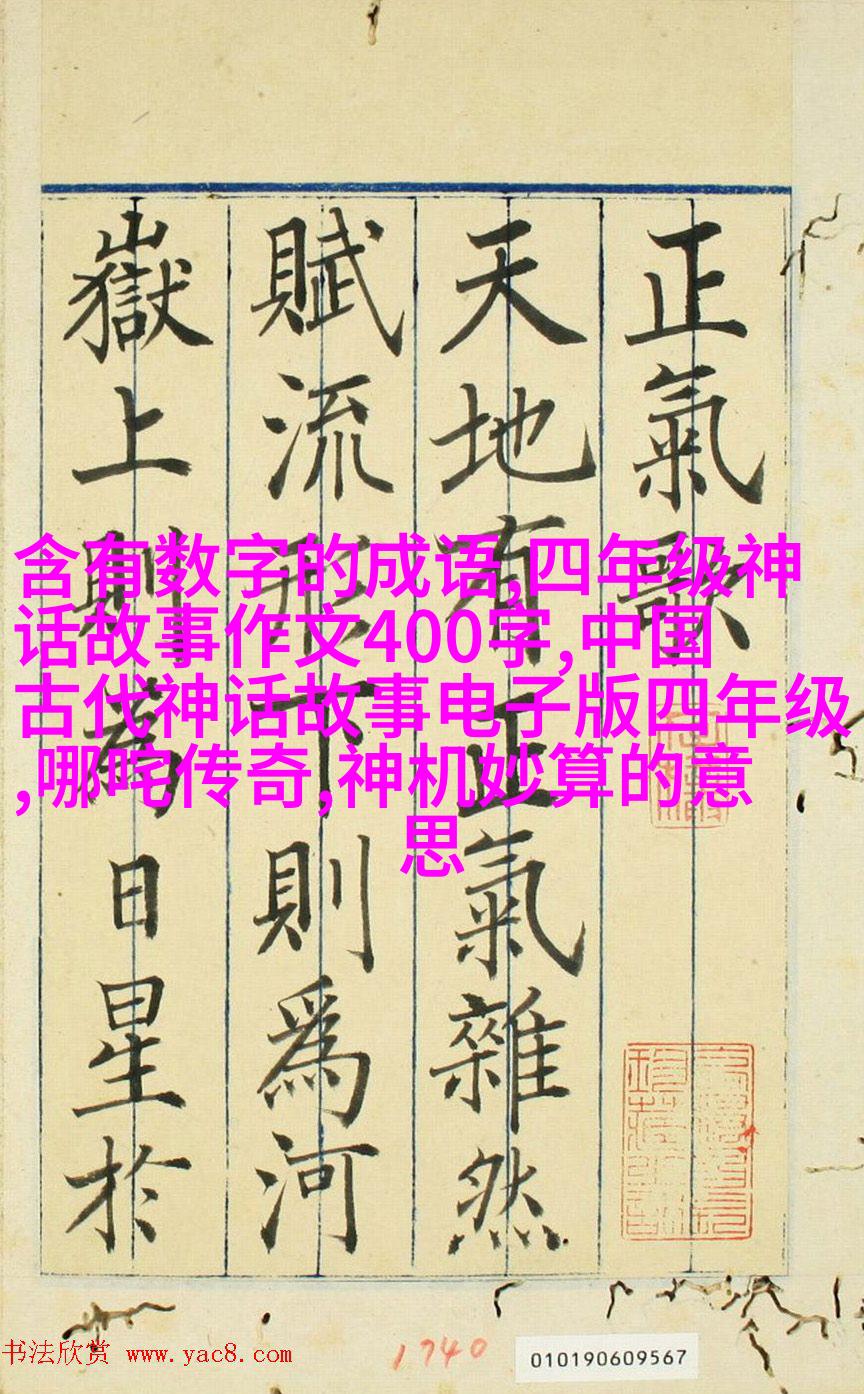 正氣歌
天地有正氣雜然
賦流形下則為河
嶽上則為日星於
含有数字的成语,四年级神
话故事作文400字,中国
古代神话故事电子版四年级
,哪咤传奇,神机妙算的意
思
书法欣赏 www.yac8.com
1740
010190609567